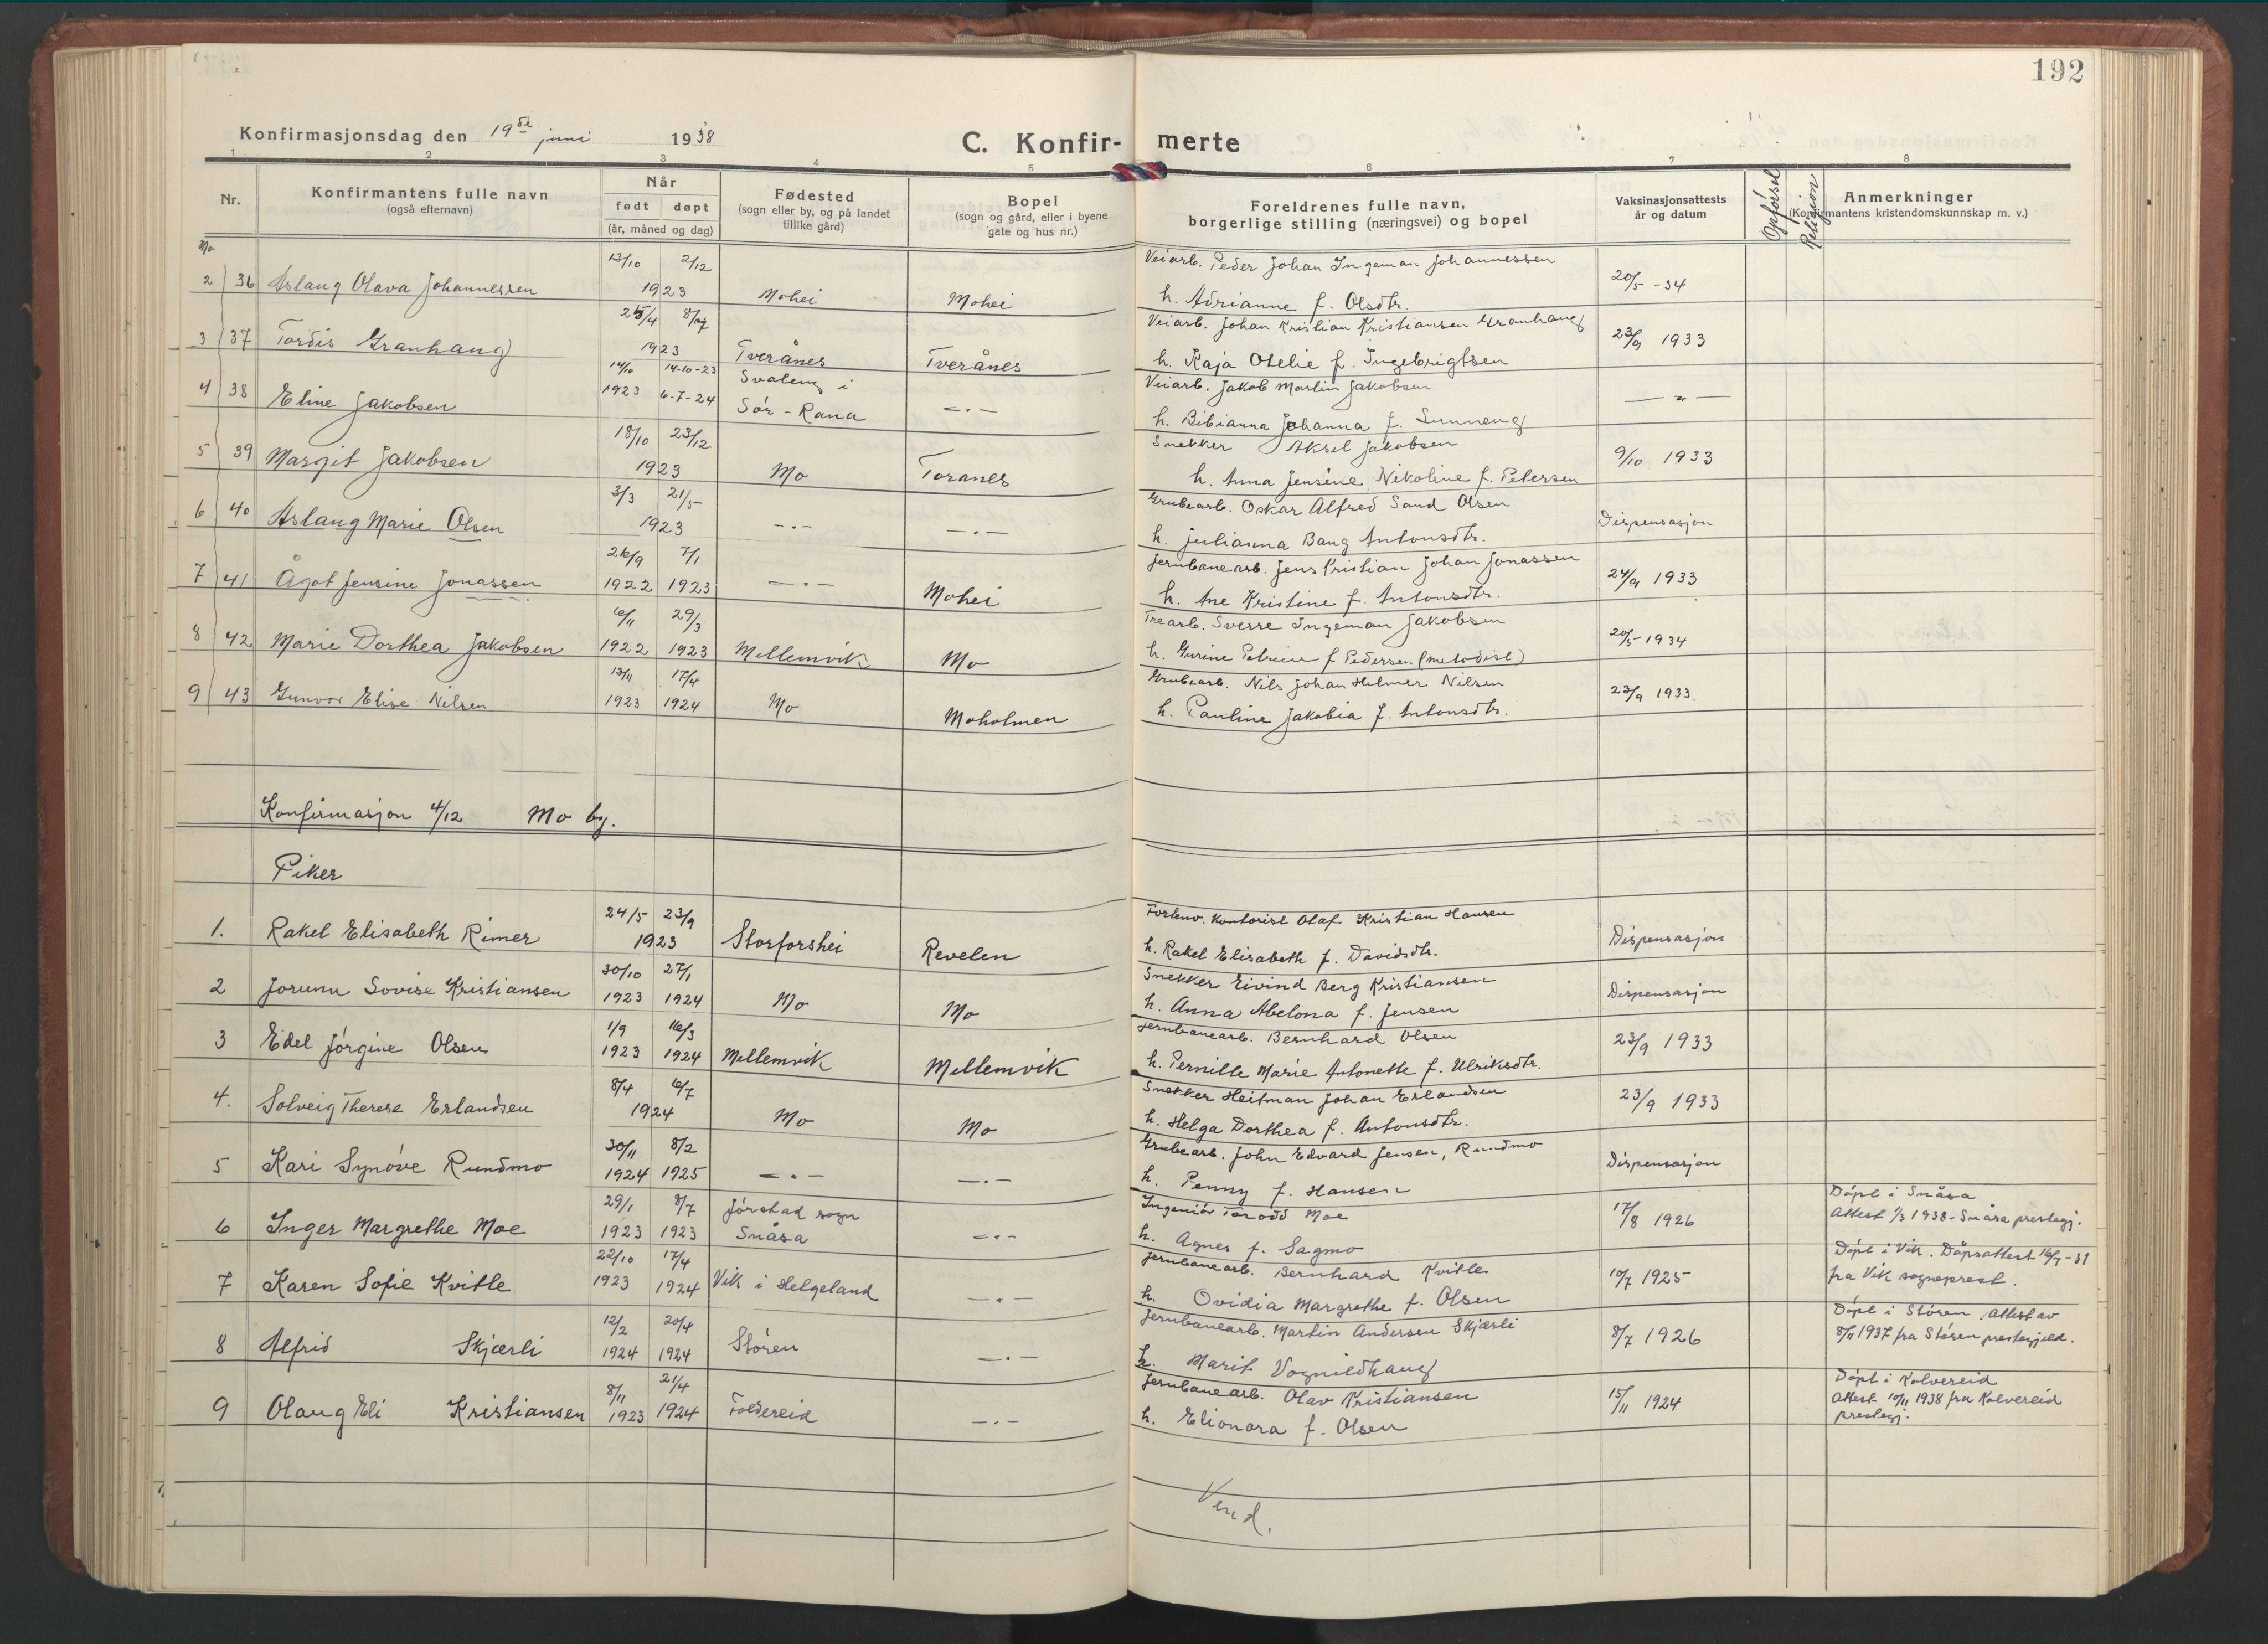 192
Konfirmasjonsdag den 19de juni 1938
C. Konfir- merte
1 2 3 4 5 6 7 8
Nr.
Konfirmantens fulle navn
(også efternavn)
Når
født døpt
(år, måned og dag)
Fødested
(sogn eller by, og på landet
tillike gård)
Bopel
(sogn og gård, eller i byene
gate og hus nr.)
Foreldrenes fulle navn,
borgerlige stilling (næringsvei) og bopel
Vaksinasjonsattests
år og datum
Opførsel
Religion
Anmerkninger
(Konfirmantens kristendomskunnskap m. v.)
Mo
13/10 2/12 Veiarb. Peder Johan Ingeman Johannessen
2 36 Aslaug Olava Johannessen 1923 Mohei Mohei h. Adrianne f. Olsdtr. 20/5 -34
25/4 8/7 Veiarb. Johan Kristian Kristiansen Granhaug
3 37 Tordis Granhaug 1923 Tverånes Tverånes h. Kaja Otelie f. Ingebrigtsen 23/9 1933
14/10 14-10-23 Svaleng i Veiarb. Jakob Martin Jakobsen
4 38 Eline Jakobsen 1923 6-7-24 Sör-Rana — . — h. Bibianna Johanna f. Sunneng — " —
18/10 23/12 Snekker Aksel Jakobsen
5 39 Margit Jakobsen 1923 Mo Toranes h. Anna Jensine Nikoline f. Petersen 9/10 1933
3/3 21/5 Grubearb. Oskar Alfred Sand Olsen
6 40 Aslaug Marie Olsen 1923 — . — — . — h. Julianna Bang Antonsdtr. Dispensasjon
26/9 7/1 Jernbanearb. Jens Kristian Johan Jonassen
7 41 Ågot Jensine Jonassen 1922 1923 — . — Mohei h. Ane Kristine f. Antonsdtr. 24/9 1933
6/11 29/3 Trearb. Sverre Ingeman Jakobsen
8 42 Marie Dorthea Jakobsen 1922 1923 Mellemvik Mo h. Gurine Petrine f. Pedersen (metodist) 20/5-1934
13/11 17/4 Grubearb. Nils Johan Helmer Nilsen
9 43 Gunvor Elise Nilsen 1923 1924 Mo Moholmen h. Pauline Jakobia f. Antonsdtr. 23/9 1933.
Konfirmasjon 4/12 Mo by.
Piker
24/5 23/9 Forlenv. Kontorist Olaf Kristian Hansen
1. Rakel Elisabeth Rimer 1923 Storforshei Revelen h. Rakel Elisabeth f. Davidsdtr. Dispensasjon
30/10 27/1 Snekker Eivind Berg Kristiansen
2 Jorunn Lovise Kristiansen 1923 1924 Mo Mo h. Anna Abelona f. Jensen Dispensasjon
1/9 16/3 Jernbanearb. Bernhard Olsen
3 Edel Jörgine Olsen 1923 1924 Mellemvik Mellemvik h. Pernille Marie Antonette f. Ulriksdtr. 23/9 1933
8/4 6/7 Snekker Heitman Johan Erlandsen
4. Solveig Therese Erlandsen 1924 Mo Mo h. Helga Dorthea f. Antonsdtr. 23/9 1933
30/11 8/2 Grubearb. John Edvard Jensen, Rundmo
5 Kari Synöve Rundmo 1924 1925 — . — — . — h. Penny f. Hansen Dispensasjon
29/1 8/7 Jörstad sogn Ingeniör Torodd Moe Döpt i Snåsa
6 Inger Margrethe Moe 1923 1923 Snåsa — . — h. Agnes f. Sagmo 17/8 1926 Attest 1/3 1938-Snåsa prestegj.
22/10 17/4 Jernbanearb. Bernhard Kvitle Döpt i Vik. Döpsattest 16/7-31
7 Karen Sofie Kvitle 1923 1924 Vik i Helgeland — . — h. Ovidia Margrethe f. Olsen 10/7 1925 fra Vik sogneprest.
12/2 20/4 Jernbanearb. Martin Andersen Skjærli Döpt i Stören. Attest av
8 Alfrid Skjærli 1924 1924 Stören — . — h. Marit Vognildhaug 8/7 1926 8/11 1937 fra Stören prestegjeld.
8/11 21/4 Jernbanearb. Olav Kristiansen Döpt i Kolvereid
9 Olaug Eli Kristiansen 1923 1924 Foldereid — . — h. Elionora f. Olsen 15/11 1924 Attest 10/11 1938 fra Kolvereid
prestegj.
Vend.